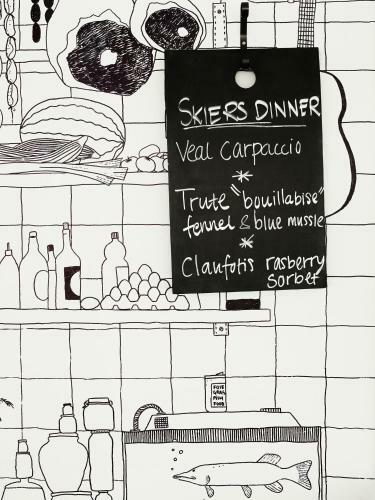 SKIERS DINNER
Veal Carpaccio
Trute "bouillabise"
fennel & blue mussle
Claufotis rasberry
Sorbet